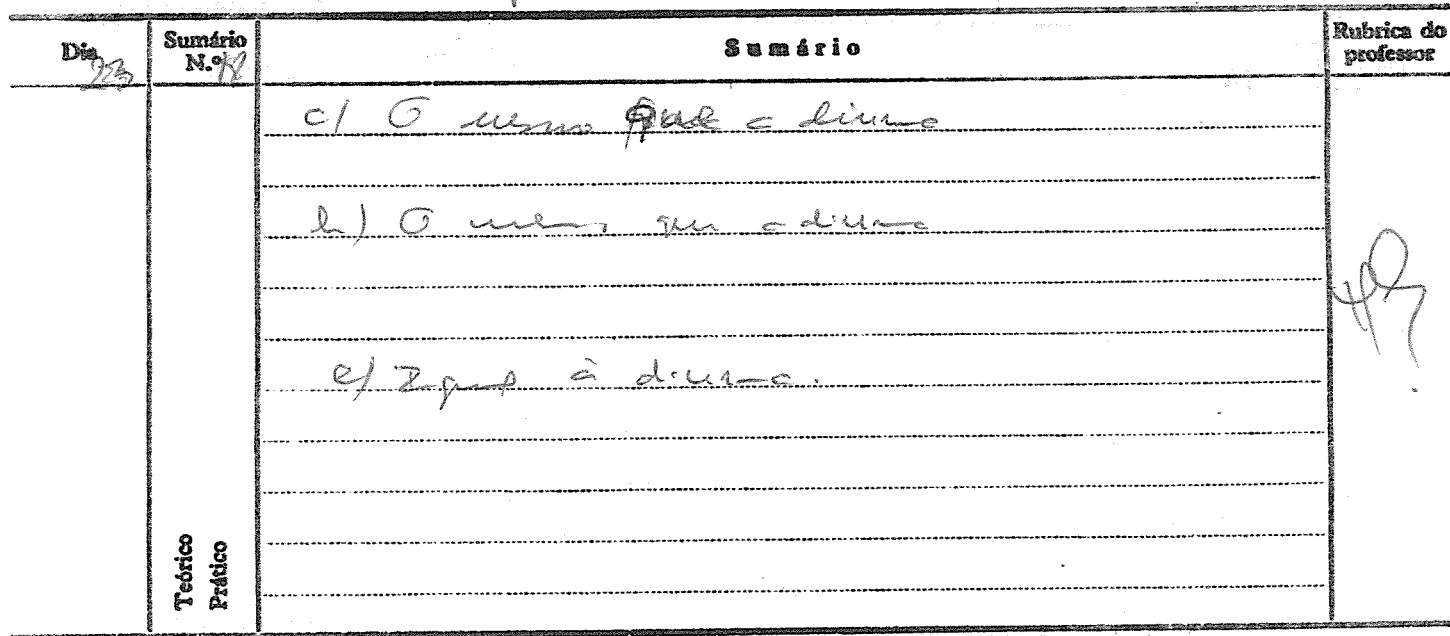 Dia 23
Sumário N.º 18
Sumário
Rubrica do professor
c/ O mesmo que a diurna
b) O mesmo que a diurna
c/ Igual à diurna.
Teórico
Prático